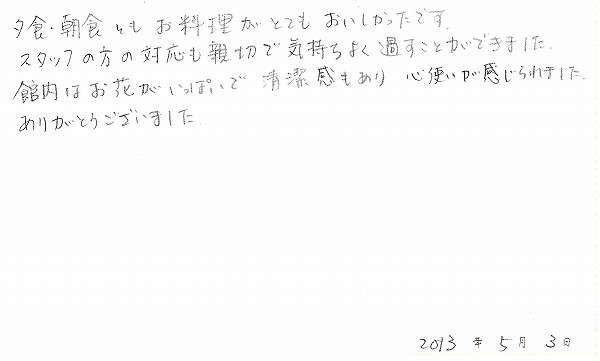 夕食・朝食ともお料理がとてもおいしかったです.
スタッフの方の対応も親切で気持ちよく過すことができました.
館内はお花がいっぱいで清潔感もあり心使いが感じられました.
ありがとうございました.
2013年5月3日